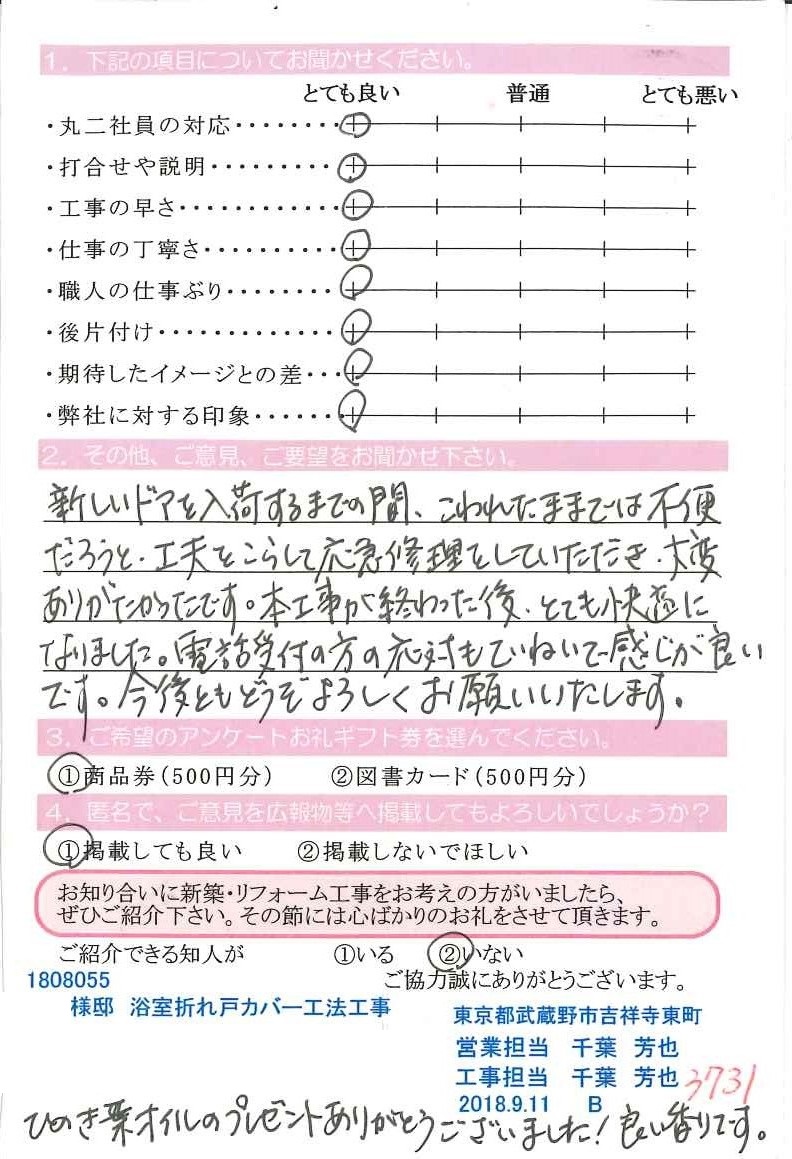 1. 下記の項目についてお聞かせください。
とても良い 普通 とても悪い
・丸二社員の対応・・・・・・・・
・打合せや説明・・・・・・・・・
・工事の早さ・・・・・・・・・・・・
・仕事の丁寧さ・・・・・・・・・・
・職人の仕事ぶり・・・・・・・・
・後片付け・・・・・・・・・・・・・
・期待したイメージとの差・・・
・弊社に対する印象・・・・・・
2. その他、ご意見、ご要望をお聞かせ下さい。
新しいドアを入荷するまでの間、こわれたままでは不便
だろうと、工夫をこらして応急修理をしていただき、大変
ありがたかったです。本工事が終わった後、とても快適に
なりました。電話受付の方の応対もていねいで感じが良い
です。今後ともどうぞよろしくお願いいたします。
3. ご希望のアンケートお礼ギフト券を選んでください。
①商品券(500円分) ②図書カード(500円分)
4. 匿名で、ご意見を広報物等へ掲載してもよろしいでしょうか?
①掲載しても良い ②掲載しないでほしい
お知り合いに新築・リフォーム工事をお考えの方がいましたら、
ぜひご紹介下さい。その節には心ばかりのお礼をさせて頂きます。
ご紹介できる知人が ①いる ②いない
1808055 ご協力誠にありがとうございます。
様邸 浴室折れ戸カバー工法工事
東京都武蔵野市吉祥寺東町
営業担当 千葉 芳也
工事担当 千葉 芳也 3731
2018.9.11 B
ひのき葉オイルのプレゼントありがとうございました!良い香りです。